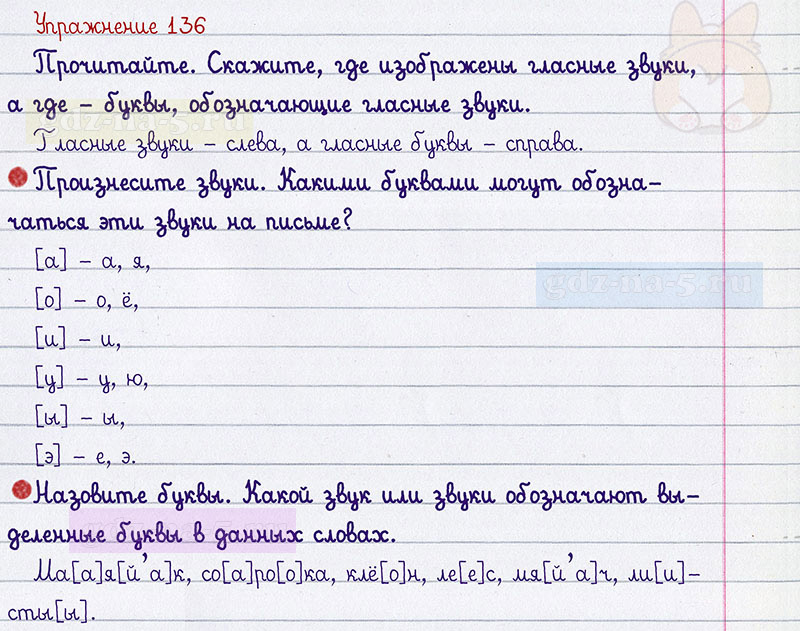 Упражнение 136
Прочитайте. Скажите, где изображены гласные звуки,
а где – буквы, обозначающие гласные звуки.
gdz-na-5.ru
Гласные звуки – слева, а гласные буквы – справа.
Произнесите звуки. Какими буквами могут обозна-
чаться эти звуки на письме?
[а] – а, я,
gdz-na-5.ru
[о] – о, ё,
[и] – и,
[у] – у, ю,
[ы] – ы,
[э] – е, э.
Назовите буквы. Какой звук или звуки обозначают вы-
деленные буквы в данных словах.
gdz-na-5.ru
Ма[а]я[й’а]к, со[а]ро[о]ка, клё[о]н, ле[е]с, мя[й’а]ч, ли[и]-
сты[ы].